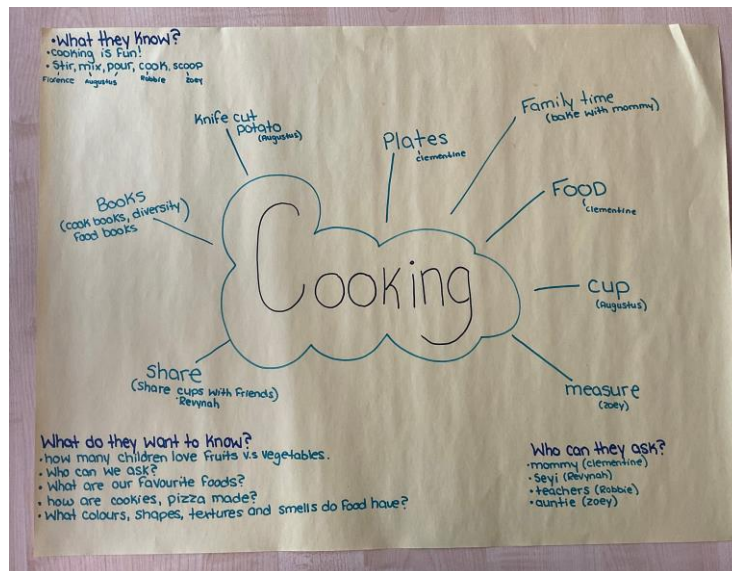 •What they know?
•cooking is fun!
•Stir, mix, pour, cook, scoop
Florence Augustus Robbie Zoey
Knife cut
potato
(Augustus)
Plates
clementine
Family time
(bake with mommy)
Books
(cook books, diversity)
food books
FOOD
clementine
Cooking
cup
(Augustus)
share
(share cups with friends)
•Revynah
measure
(zoey)
What do they want to know?
•how many children love fruits v.s vegetables.
•Who can we ask?
•What are our favourite foods?
•how are cookies, pizza made?
•What colours, shapes, textures and smells do food have?
Who can they ask?
•mommy (clementine)
•Seyi (Revynah)
•teachers (Robbie)
•auntie (zoey)